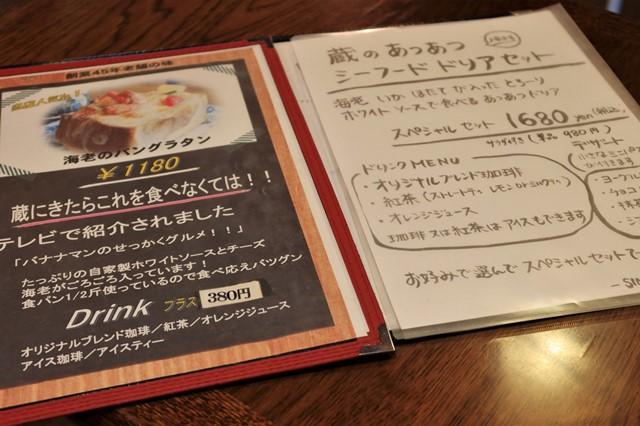 創業45年老舗の味
当店人気No.1！
海老のパングラタン
￥1180
蔵にきたらこれを食べなくては！！
テレビで紹介されました
「バナナマンのせっかくグルメ！！」
たっぷりの自家製ホワイトソースとチーズ
海老がごろごろ入っています！
食パン1/2斤使っているので食べ応えバツグン
Drink プラス 380円
オリジナルブレンド珈琲／紅茶／オレンジジュース
アイス珈琲／アイスティー
蔵のあつあつ
シーフードドリアセット
海老 いか ほたて が入った とろーり
ホワイトソースで食べる あつあつドリア
スペシャルセット 1680yen(税込)
サラダ付き (単品 980円)
ドリンクMENU
・オリジナルブレンド珈琲
・紅茶 (ストレート or レモン or ミルク)
・オレンジジュース
珈琲又は紅茶はアイスもできます
デザート
・ヨーグル
お好みで選んで スペシャルセットで